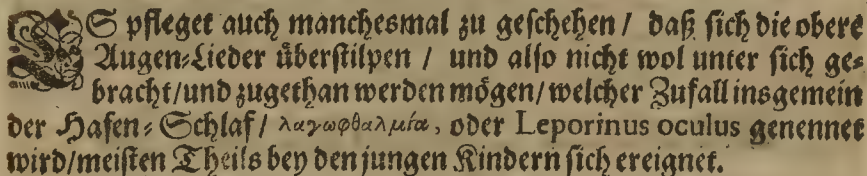 ES pfleget auch manchesmal zu geschehen / daß sich die obere
Augen-Lieder überstilpen / und also nicht wol unter sich ge-
bracht/und zugethan werden mögen/welcher Zufall insgemein
der Hasen-Schlaf/ λαγωφθαλμία, oder Leporinus oculus genennet
wird/meisten Theils bey den jungen Kindern sich ereignet.